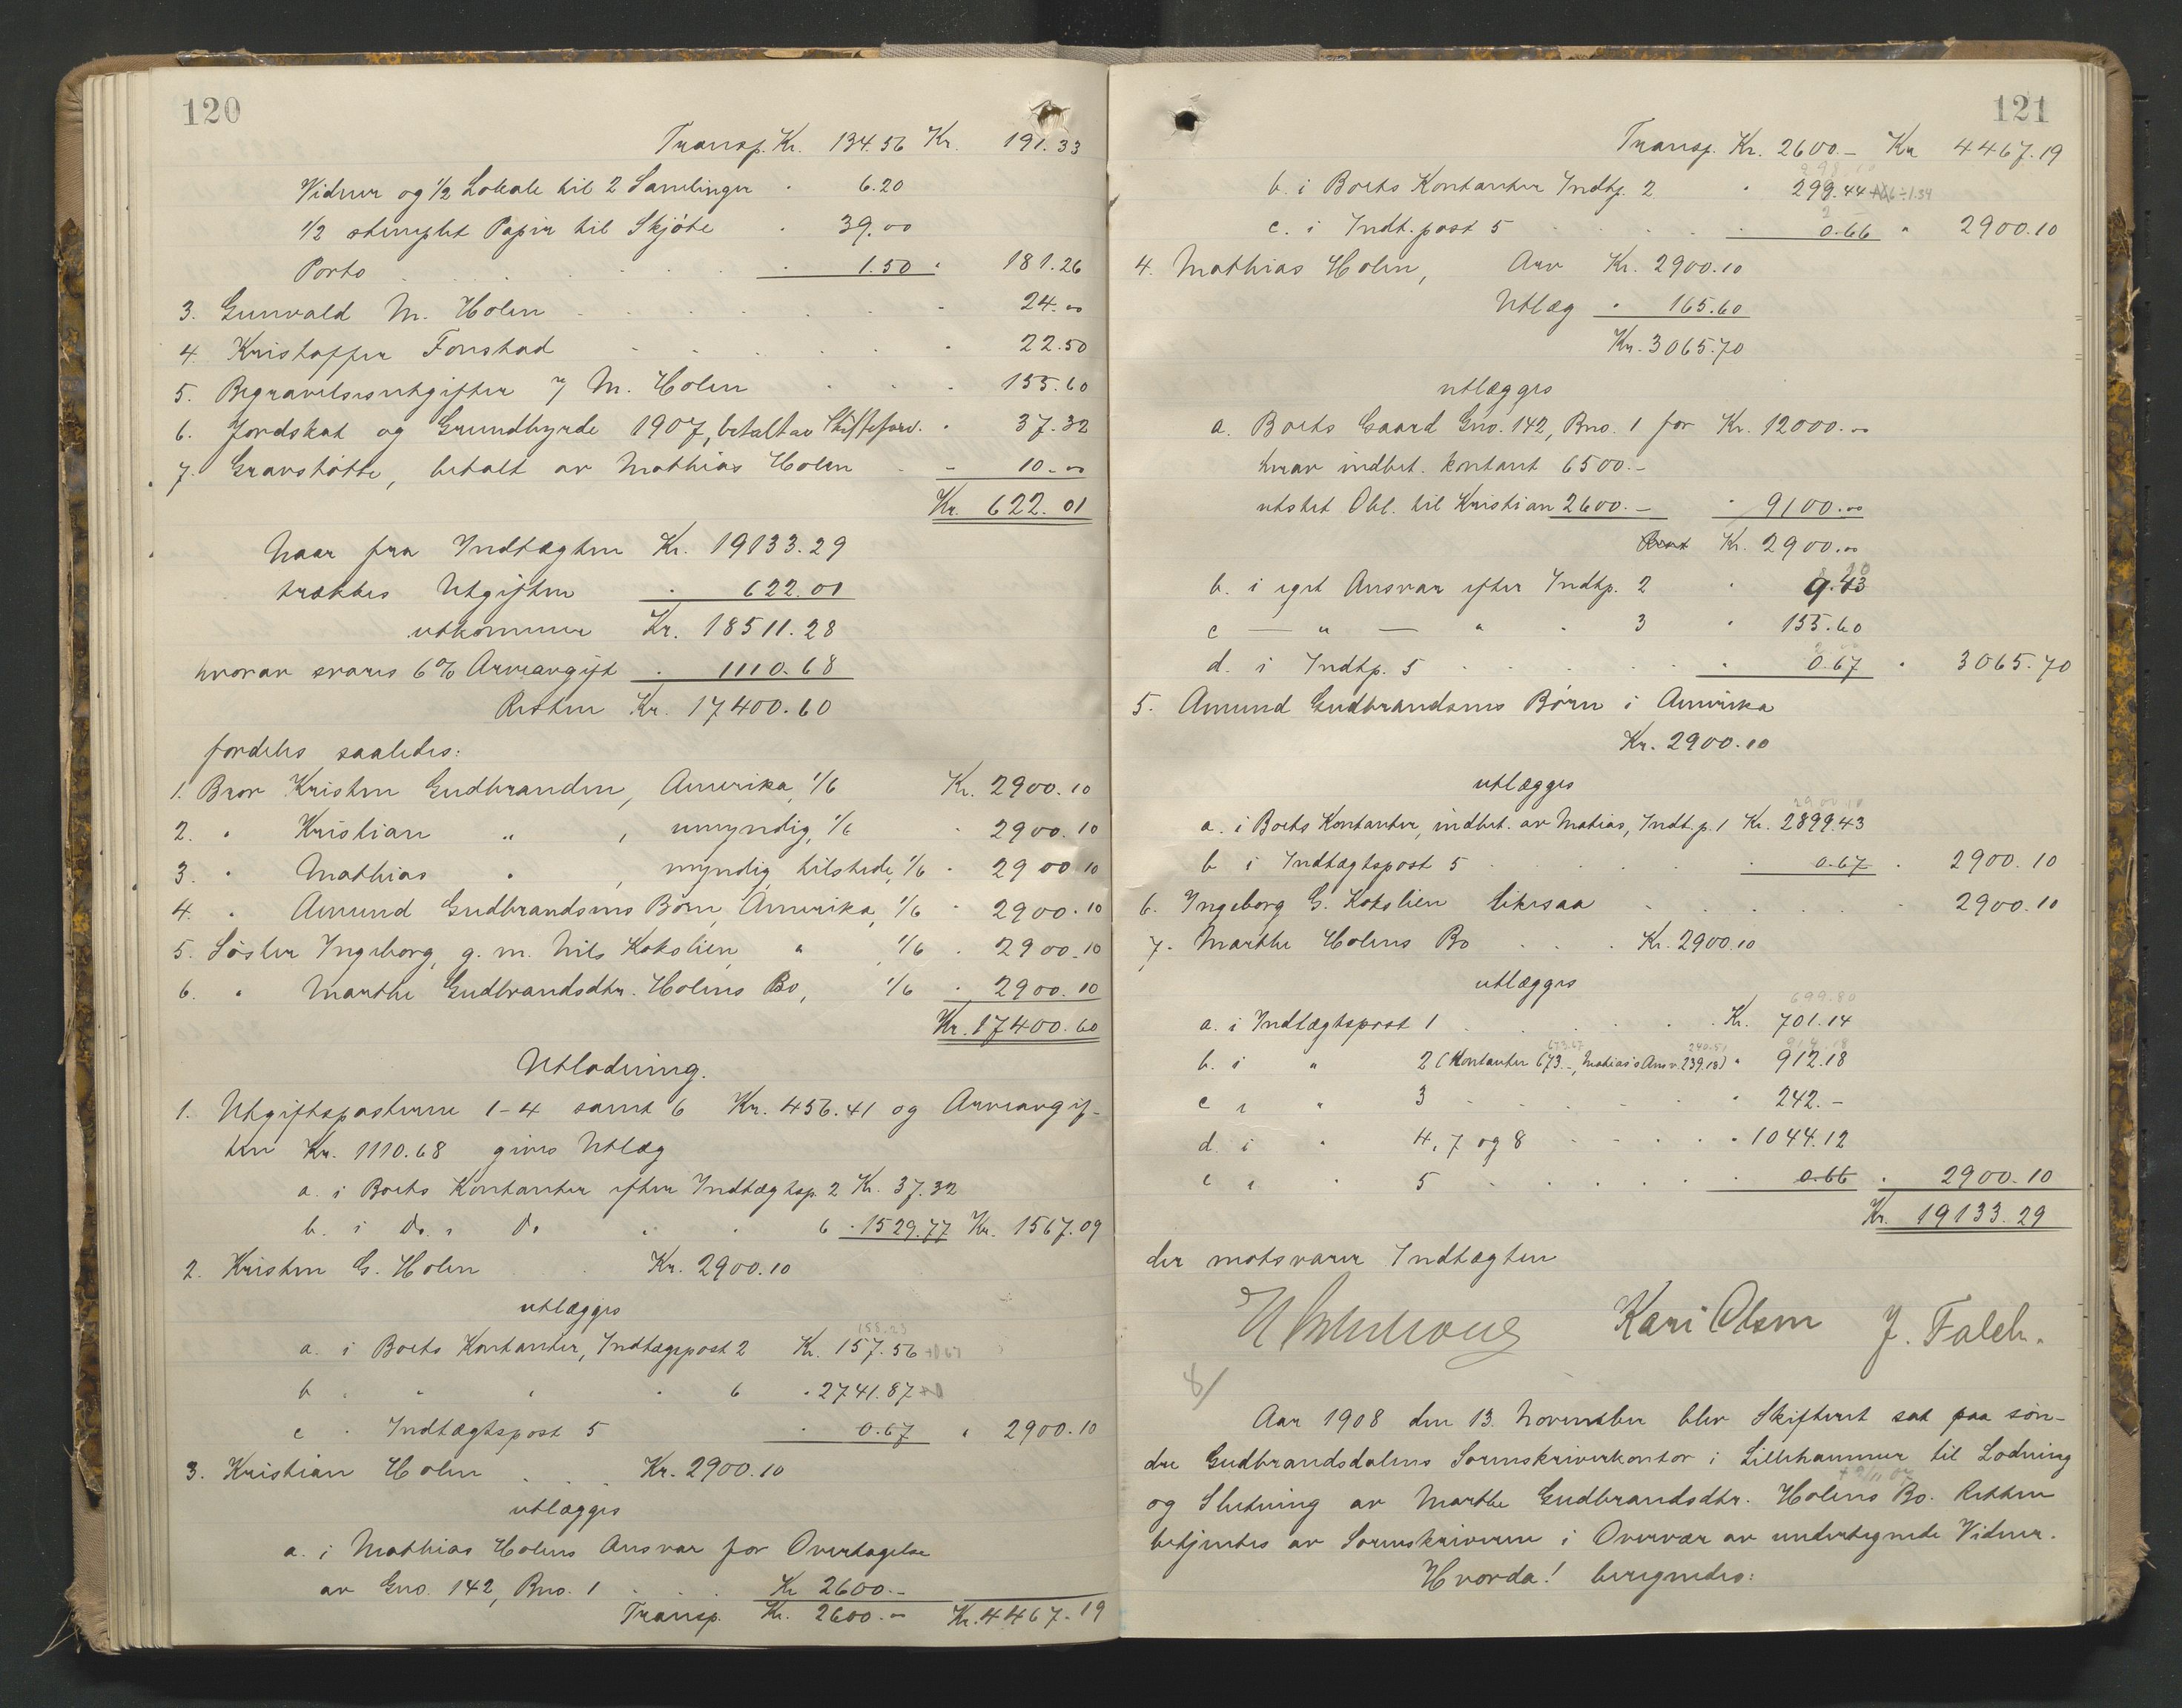 120
Transp. Kr. 134.56 Kr. 191.33
Vidner og 1/2 Lokale til 2 Samlinger 6.20
1/2 stemplet Papir til Skjøte 39.00
Porto 1.50 181.26
3. Gunvald M. Holen 24.00
4. Kristoffer Fonstad 22.50
5. Begravelsesutgifter v/ M. Holen 155.60
6. Jordskat og Grundbyrde 1907, betalt av Skifteforv. 37.32
7. Gravstøtte, betalt av Mathias Holen 10.00
Kr. 622.01
Naar fra Indtægten Kr. 19133.29
trækkes Utgiften 622.01
utkommer Kr. 18511.28
hvorav svares 6% Arveavgift 1110.68
Resten Kr. 17400.60
fordeles saaledes:
1. Bror Kristen Gudbrandsen, Amerika, 1/6 Kr. 2900.10
2. " Kristian " , umyndig, 1/6 " 2900.10
3. " Mathias " , myndig, tilstede, 1/6 " 2900.10
4. " Amund Gudbrandsens Børn, Amerika, 1/6 " 2900.10
5. Søster Ingeborg, g. m. Nils Kokslien, " , 1/6 " 2900.10
6. " Marthe Gudbrandsdtr. Holens Bo, 1/6 " 2900.10
Kr. 17400.60
Utlodning.
1. Utgiftsposterne 1-4 samt 6 Kr. 456.41 og Arveavgif-
ten Kr. 1110.68 gives Utlæg
a. i Boets Kontanter efter Indtægtsp. 2 Kr. 37.32
b. i Do. " Do " " 6 " 1529.77 Kr. 1567.09
2. Kristen G. Holen Kr. 2900.10
utlægges
158.23
a. i Boets Kontanter, Indtægspost 2 Kr. 157.56 +0.67
b " " " " 6 " 2741.87
c " Indtægtspost 5 " 0.67 " 2900.10
3. Kristian Holen Kr. 2900.10
utlægges
a. i Mathias Holens Ansvar for Overtagelse
av Gno. 142, Bno. 1 Kr 2600.-
Transp. Kr. 2600.- Kr. 4467.19
121
Transp. Kr. 2600.- Kr 4467.19
b. i Boets Kontanter Indtp. 2 " 299.44
c. i Indt. post 5 " 0.66 " 2900.10
4. Mathias Holen, Arv Kr. 2900.10
Utlæg " 165.60
Kr. 3065.70
utlægges
a. Boets Gaard Gno. 142, Bno. 1 for Kr. 12000.00
hvorav indbet. kontant 6500.-
utstet Obl. til Kristian 2600.- " 9100.00
Kr. 2900.00
b. i eget Ansvar efter Indtp. 2 " 9.43
c - " - " " 3 " 155.60
d. i Indtp. 5 " 0.67 " 3065.70
5. Amund Gudbrandsens Børn i Amerika
Kr. 2900.10
utlægges
2900.10
a. i Boets Kontanter, indbet. av Matias, Indt. p. 1 Kr. 2899.43
b i Indtægtspost 5 " 0.67 " 2900.10
6. Ingeborg G. Kokslien likesaa " 2900.10
7. Marthe Holens Bo Kr. 2900.10
utlægges
699.80
a. i Indtægtspost 1 Kr. 701.14
673.67 240.51 914.18
b. i " 2 (Kontanter 673.-, Mathias's Ansv. 239.18) " 912.18
c i " 3 " 242.-
d. i " 4, 7 og 8 " 1044.12
e i " 5 " 0.66 " 2900.10
Kr. 19133.29
der motsvarer Indtægten
Kari Olsen J. Falch.
8/
Aar 1908 den 13. November blev Skifteret sat paa søn-
dre Gudbrandsdalens Sorenskriverkontor i Lillehammer til Lodning
og Slutning av Marthe Gudbrandsdtr. Holens Bo. Retten
betjentes av Sorenskriveren i Overvær av undertegnede Vidner.
Hvorda! beregnedes: